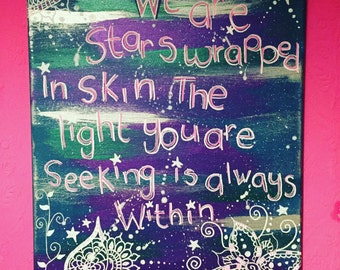 We are
Stars wrapped
in skin The
light you are
Seeking is always
Within